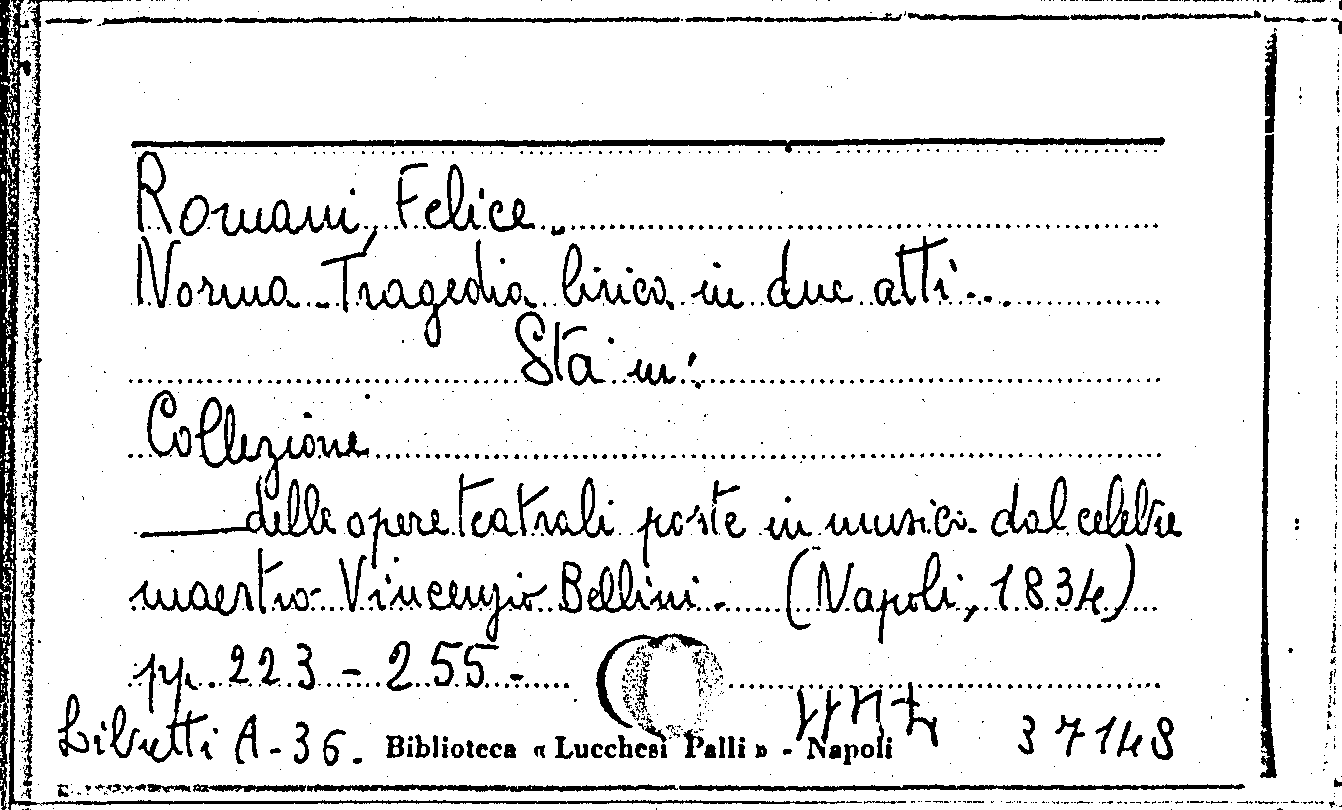 Romani, Felice.
Norma. Tragedia lirica in due atti...
Sta in:
Collezione
delle opere teatrali poste in musica dal celebre
maestro Vincenzo Bellini. (Napoli, 1834)
pp. 223 - 255 -
Libretti A-36. Biblioteca « Lucchesi Palli » - Napoli 37148